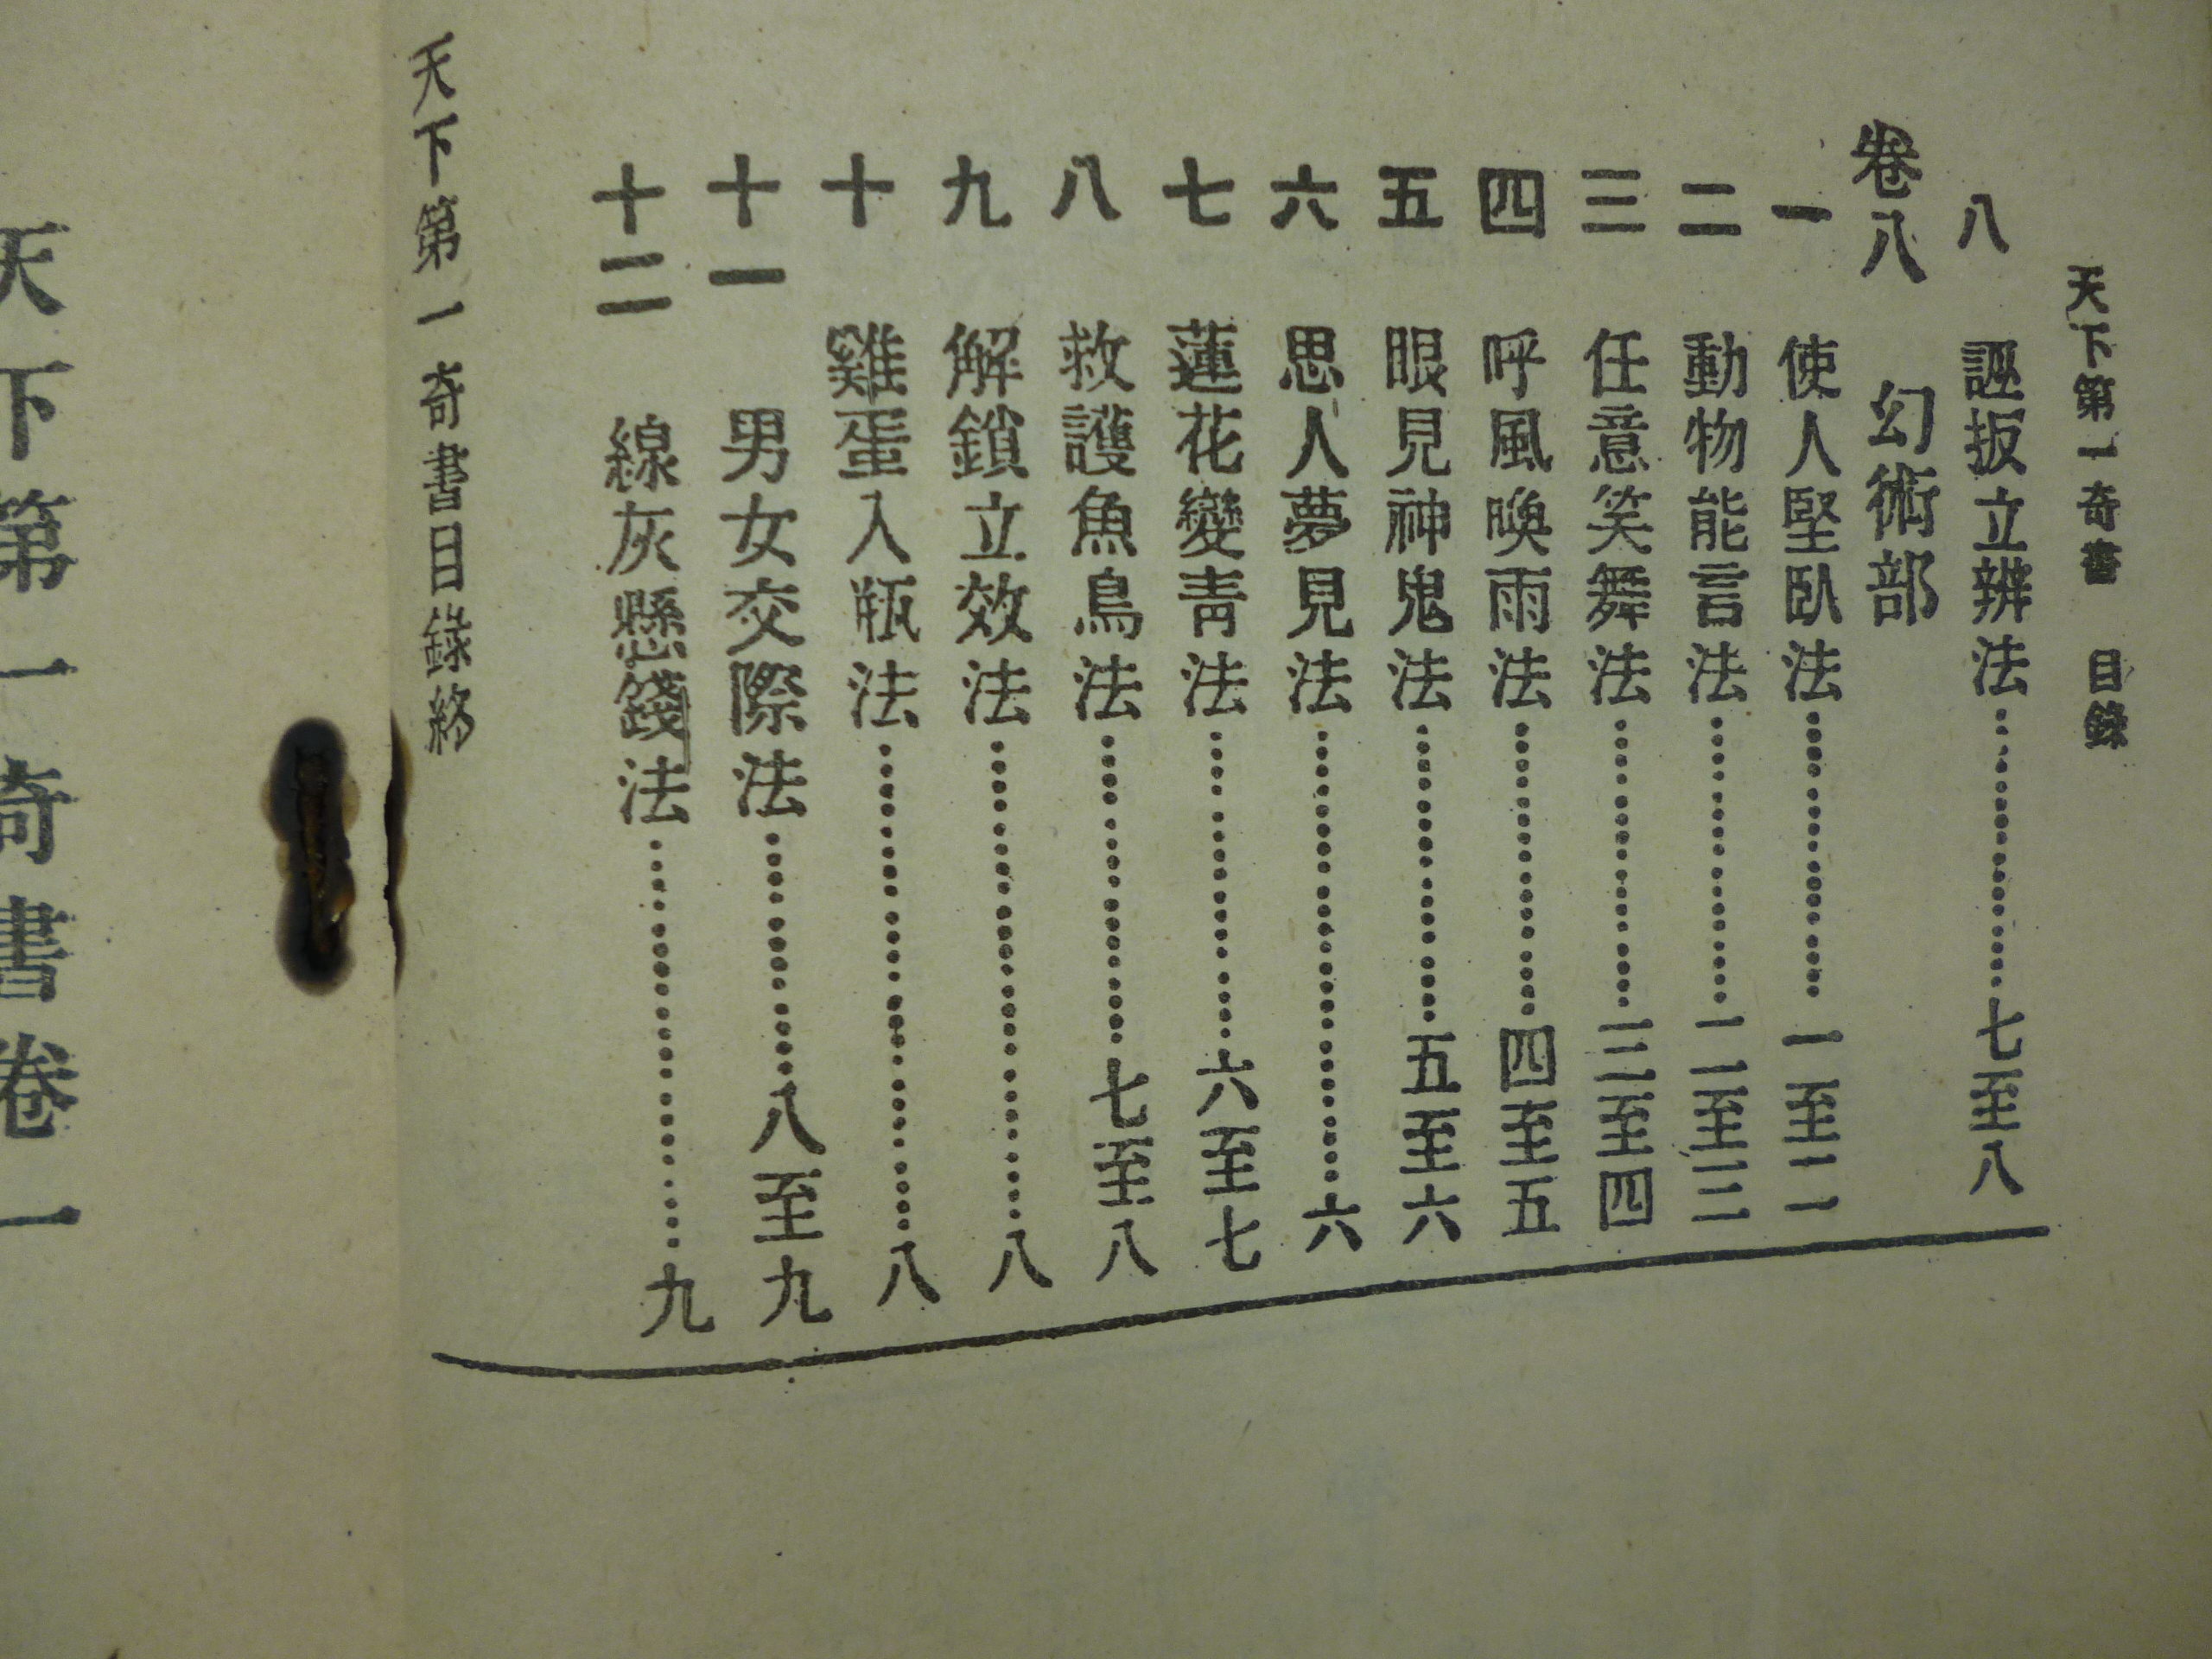 天下第一奇書　目錄
八　誣扳立辨法……………七至八
卷八　幻術部
一　使人堅臥法……………一至二
二　動物能言法……………二至三
三　任意笑舞法……………三至四
四　呼風喚雨法……………四至五
五　眼見神鬼法……………五至六
六　思人夢見法……………六
七　蓮花變青法……………六至七
八　救護魚鳥法……………七至八
九　解鎖立效法……………八
十　雞蛋入瓶法……………八
十一　男女交際法……………八至九
十二　線灰懸錢法……………九
天下第一奇書目錄終
天下第一奇書卷一